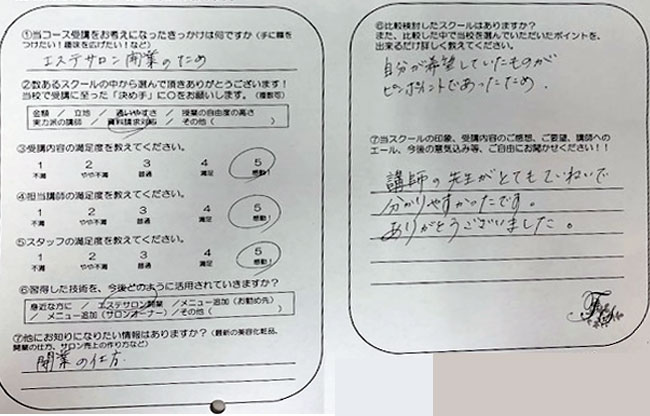 ①当コース受講をお考えになったきっかけは何ですか（手に職を
つけたい！趣味を広げたい！など）
エステサロン開業のため
②数あるスクールの中から選んで頂きありがとうございます！
当校で受講に至った「決め手」に〇をお願いします。（複数可）
金額 ／ 立地 ／ 通いやすさ ／ 授業の自由度の高さ
実力派の講師 ／ 資料請求対応 ／ その他（ ）
③受講内容の満足度を教えてください。
1 2 3 4 5
不満 やや不満 普通 満足 感動！
④担当講師の満足度を教えてください。
1 2 3 4 5
不満 やや不満 普通 満足 感動！
⑤スタッフの満足度を教えてください。
1 2 3 4 5
不満 やや不満 普通 満足 感動！
⑥習得した技術を、今後どのように活用されていきますか？
身近な方に ／ エステサロン開業 ／ メニュー追加（お勤め先）
／ メニュー追加（サロンオーナー）／ その他（ ）
⑦他にお知りになりたい情報はありますか？（最新の美容化粧品、
開業の仕方、サロン売上の作り方など）
開業の仕方
⑥比較検討したスクールはありますか？
また、比較した中で当校を選んでいただいたポイントを、
出来るだけ詳しく教えてください。
自分が希望していたものが
ピンポイントであったため。
⑦当スクールの印象、受講内容のご感想、ご要望、講師への
エール、今後の意気込み等、ご自由にお聞かせください！！
講師の先生がとてもていねいで
分かりやすかったです。
ありがとうございました。